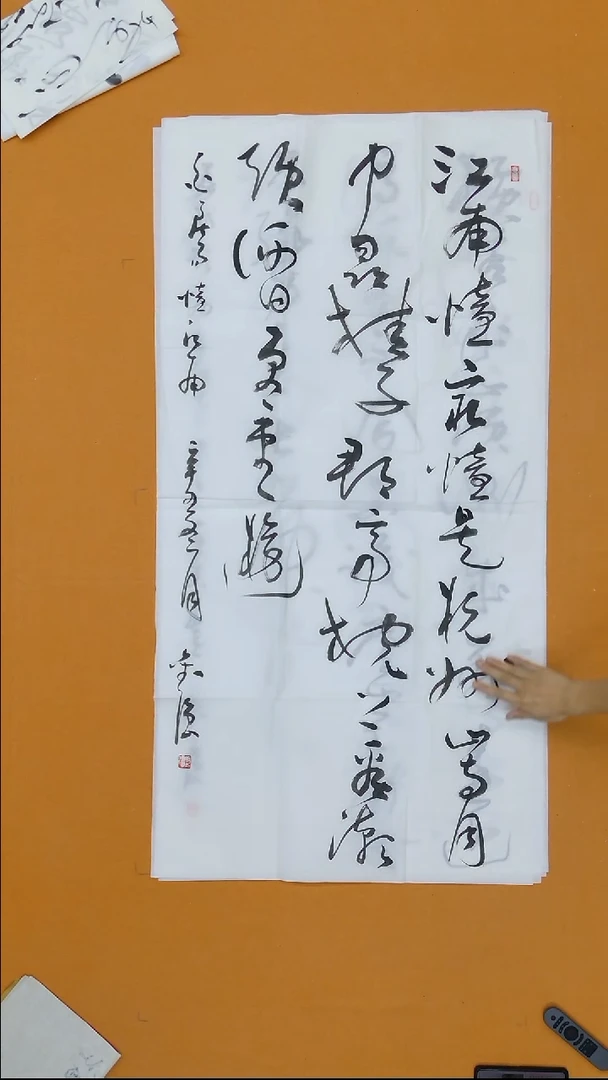 江南憶最憶是杭州山寺月
中尋桂子郡亭枕上看潮
頭何日更重遊
白居易憶江南 辛丑 月